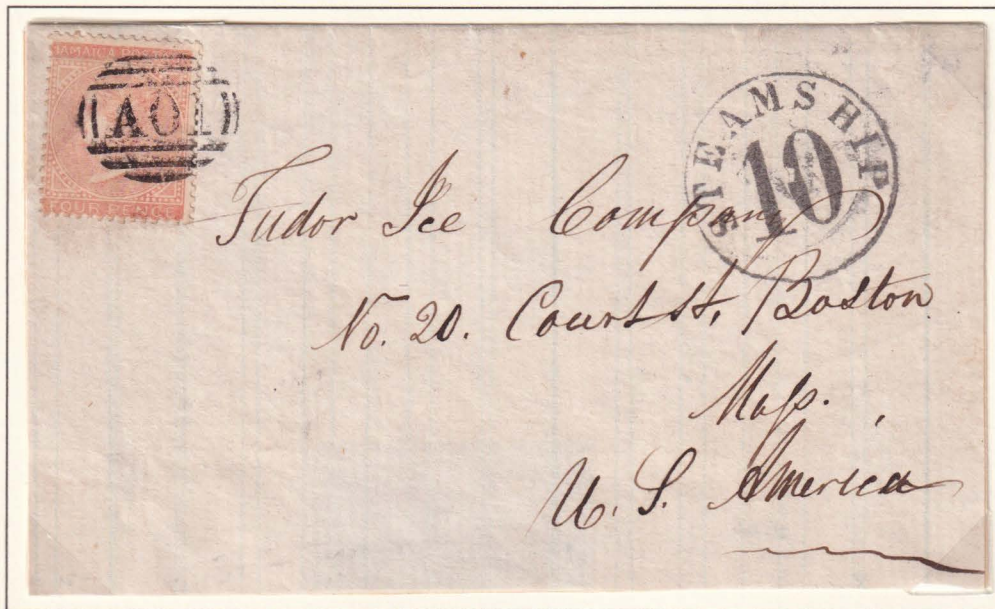 JAMAICA POSTAGE
A01
FOUR PENCE
STEAMSHIP
10
Tudor Ice Company
No. 20. Court St, Boston
Mass.
U. S. America